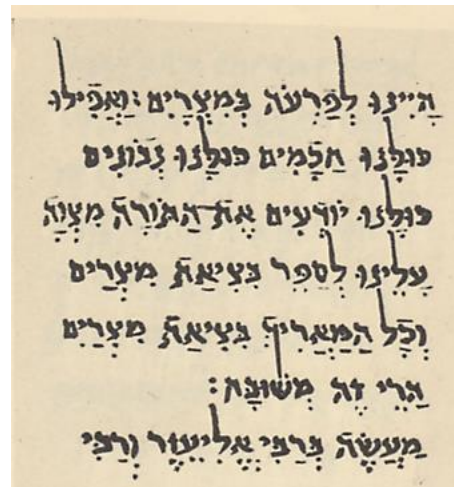 הָיִינוּ לְפַרְעֹה בְּמִצְרָיִם: וַאֲפִילוּ
כּוּלָנוּ חֲכָמִים כּוּלָנוּ נְבוֹנִים
כּוּלָנוּ יוֹדְעִים אֶת הַתּוֹרָה מִצְוָה
עָלֵינוּ לְסַפֵּר בִּיצִיאַת מִצְרַיִם
וְכָל הַמַאֲרִיךְ בִּיצִיאַת מִצְרַיִם
הֲרֵי זֶה מְשׁוּבָּח:
מַעֲשֶׂה בְּרַבִּי אֱלִיעֶזֶר וְרַבִּי